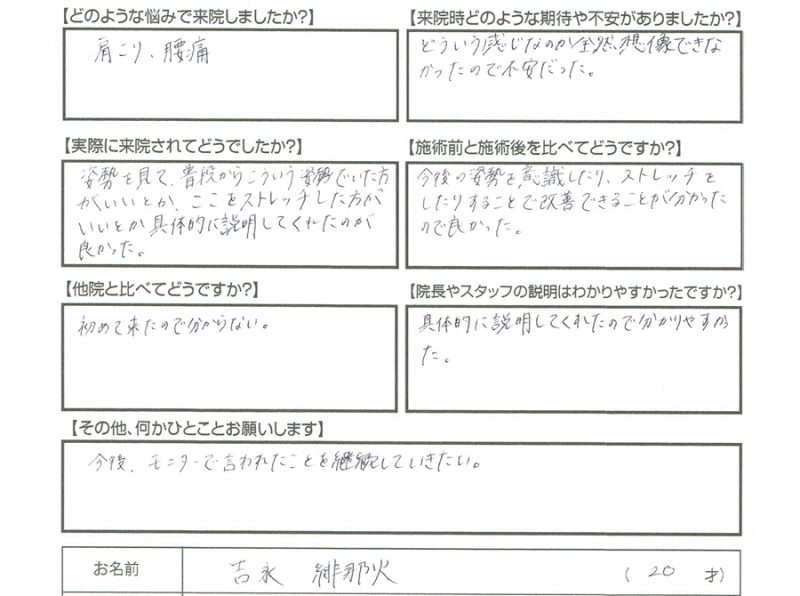 【どのような悩みで来院しましたか?】
肩こり、腰痛
【来院時どのような期待や不安がありましたか?】
どういう感じなのか全然想像できな
かったので不安だった。
【実際に来院されてどうでしたか?】
姿勢を見て、普段からこういう姿勢でいた方
がいいとか、ここをストレッチした方が
いいとか具体的に説明してくれたのが
良かった。
【施術前と施術後を比べてどうですか?】
今後の姿勢を意識したり、ストレッチを
したりすることで改善できることが分かった
ので良かった。
【他院と比べてどうですか?】
初めて来たので分からない。
【院長やスタッフの説明はわかりやすかったですか?】
具体的に説明してくれたので分かりやすかっ
た。
【その他、何かひとことお願いします】
今後、モニターで言われたことを継続していきたい。
お名前 吉永 緋那火 (20才)